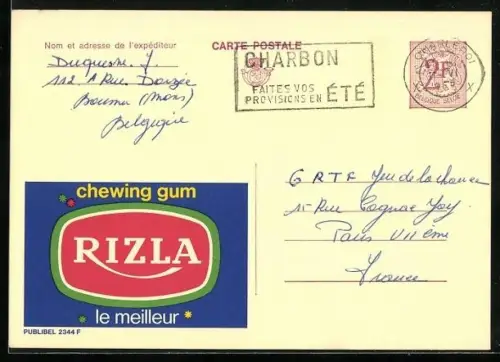 Nom et adresse de l'expéditeur
Duquesne J.
112 A Rue
(Mons)
Belgique
CARTE POSTALE
CHARBON
FAITES VOS
PROVISIONS EN ÉTÉ
2F
BELGIQUE BELGIE
G R T F Jeu de la chance
15 Rue Cognac Jay
Paris VII ème
France
chewing gum
RIZLA
le meilleur
PUBLIBEL 2344 F